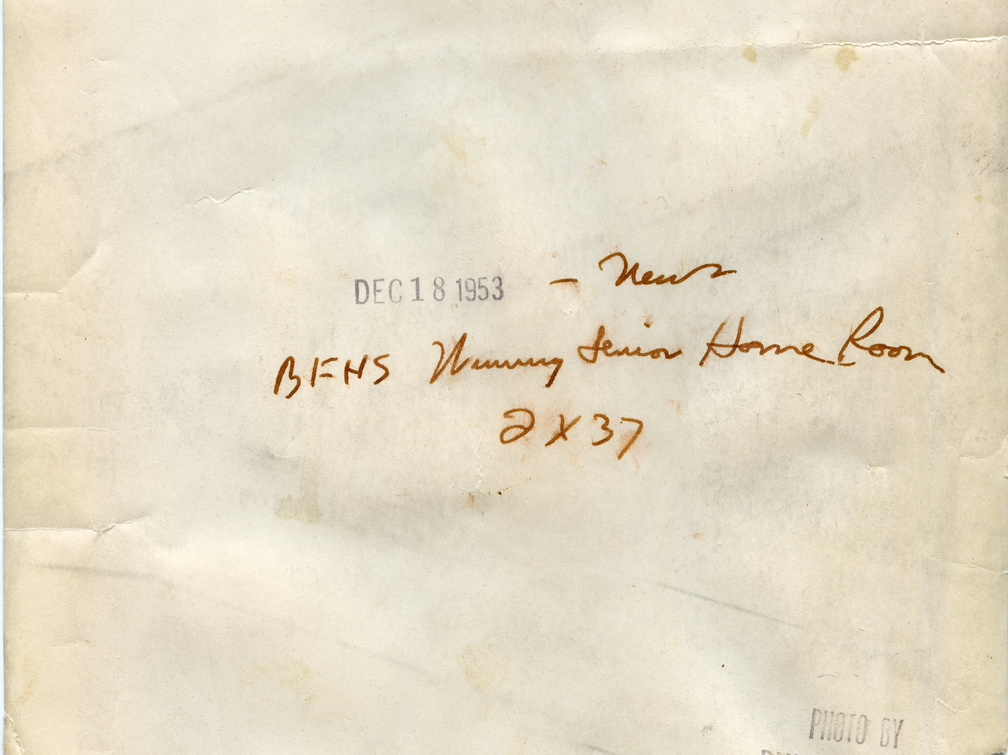 DEC 18 1953 - News
BENS Winning Senior Home Room
2 X 37
PHOTO BY